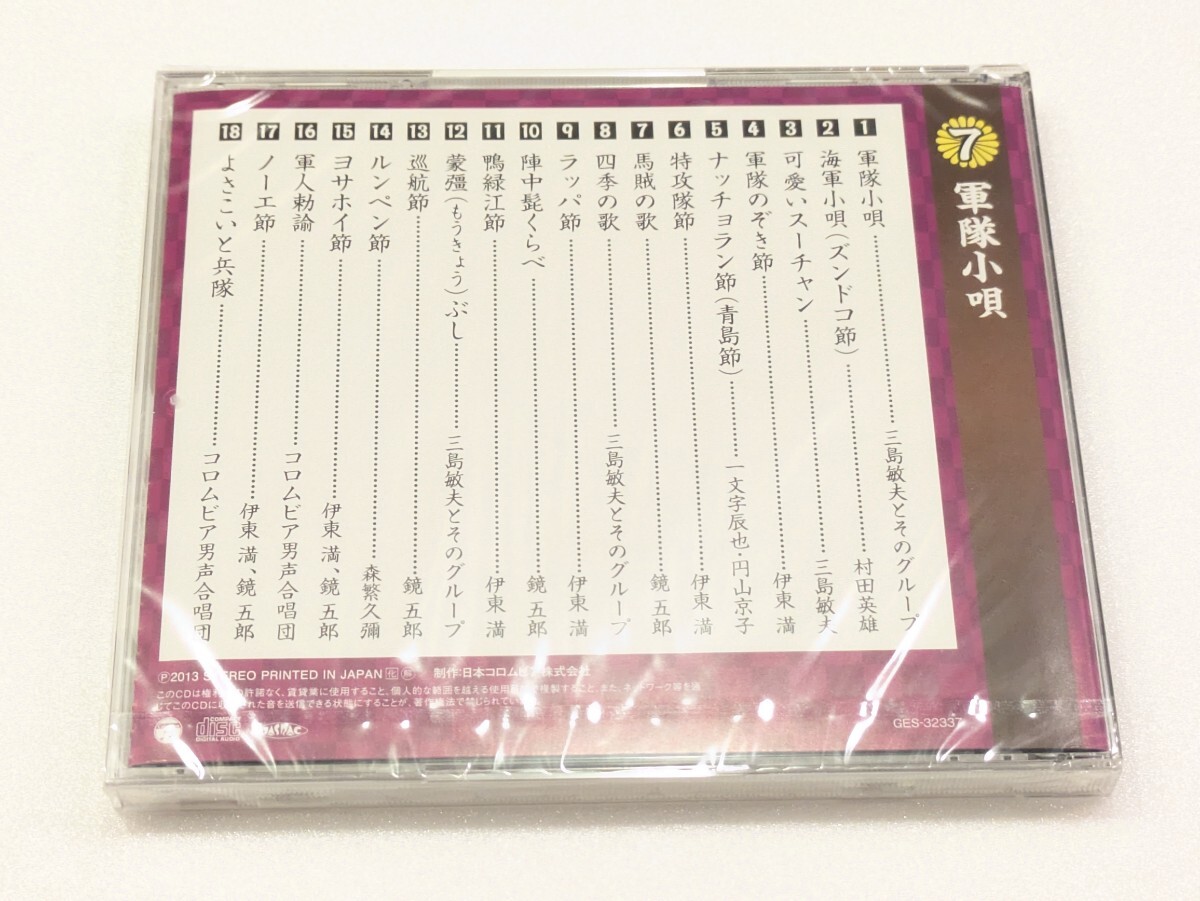 7 軍隊小唄
1 軍隊小唄 三島敏夫とそのグループ
2 海軍小唄(ズンドコ節) 村田英雄
3 可愛いスーチャン 三島敏夫
4 軍隊のぞき節 伊東 満
5 ナッチョラン節(青島節) 一文字辰也・円山京子
6 特攻隊節 伊東 満
7 馬賊の歌 鏡 五郎
8 四季の歌 三島敏夫とそのグループ
9 ラッパ節 伊東 満
10 陣中髭くらべ 鏡 五郎
11 鴨緑江節 伊東 満
12 蒙彊(もうきょう)ぶし 三島敏夫とそのグループ
13 巡航節 鏡 五郎
14 ルンペン節 森繁久彌
15 ヨサホイ節 伊東 満、鏡 五郎
16 軍人勅諭 コロムビア男声合唱団
17 ノーエ節 伊東 満、鏡 五郎
18 よさこいと兵隊 コロムビア男声合唱団
Ⓟ2013 STEREO PRINTED IN JAPAN 制作:日本コロムビア株式会社
このCDは権利者の許諾なく、賃貸業に使用すること、個人的な範囲を越える使用目的で複製すること、また、ネットワーク等を通
じてこのCDに収録された音を送信できる状態にすることが、著作権法で禁じられています。
COMPACT disc DIGITAL AUDIO JASRAC GES-32337